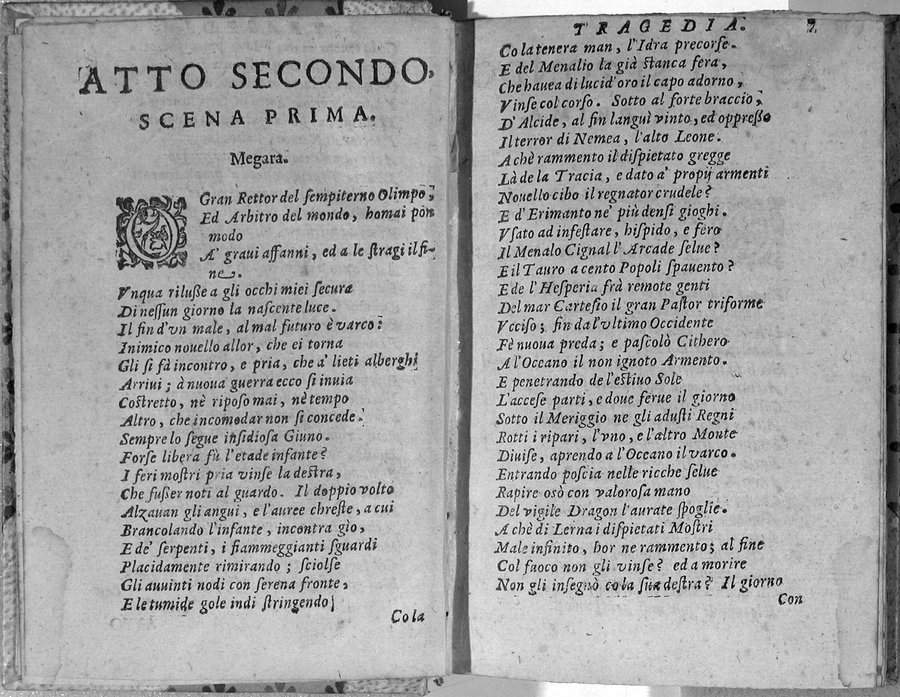 ATTO SECONDO,
SCENA PRIMA.
Megara.
O Gran Rettor del sempiterno Olimpo,
Ed Arbitro del mondo, homai pon
modo
A' graui affanni, ed a le stragi il fi-
ne.
Vnqua rilusse a gli occhi miei secura
Di nessun giorno la nascente luce.
Il fin d'vn male, al mal futuro è varco:
Inimico nouello allor, che ei torna
Gli si fà incontro, e pria, che a' lieti alberghi
Arriui; à nuoua guerra ecco si inuia
Costretto, nè riposo mai, nè tempo
Altro, che incomodar non si concede.
Sempre lo segue insidiosa Giuno.
Forse libera fù l'etade infante?
I feri mostri pria vinse la destra,
Che fusser noti al guardo. Il doppio volto
Alzauan gli angui, e l'auree chreste, a cui
Brancolando l'infante, incontra gio,
E de' serpenti, i fiammeggianti sguardi
Placidamente rimirando; sciolse
Gli auuinti nodi con serena fronte,
E le tumide gole indi stringendo;
Cola
TRAGEDIA. 7
Co la tenera man, l'Idra precorse.
E del Menalio la già stanca fera,
Che hauea di lucid'oro il capo adorno,
Vinse col corso. Sotto al forte braccio,
D'Alcide, al fin languì vinto, ed oppresso
Il terror di Nemea, l'alto Leone.
A chè rammento il dispietato gregge
Là de la Tracia, e dato a' proprij armenti
Nouello cibo il regnator crudele?
E d'Erimanto ne' più densi gioghi.
Vsato ad infestare, hispido, e fero
Il Menalo Cignal l'Arcade selue?
E il Tauro a cento Popoli spauento?
E de l'Hesperia frà remote genti
Del mar Cartesio il gran Pastor triforme
Vcciso; fin da l'vltimo Occidente
Fè nuoua preda; e pascolò Cithero
A l'Oceano il non ignoto Armento.
E penetrando de l'estiuo Sole
L'accese parti, e doue ferue il giorno
Sotto il Meriggio ne gli adusti Regni
Rotti i ripari, l'vno, e l'altro Monte
Diuise, aprendo a l'Oceano il varco.
Entrando poscia nelle ricche selue
Rapire osò con valorosa mano
Del vigile Dragon l'aurate spoglie.
A chè di Lerna i dispietati Mostri
Male infinito, hor ne rammento; al fine
Col fuoco non gli vinse? ed a morire
Non gli insegnò co la sua destra? Il giorno
Con